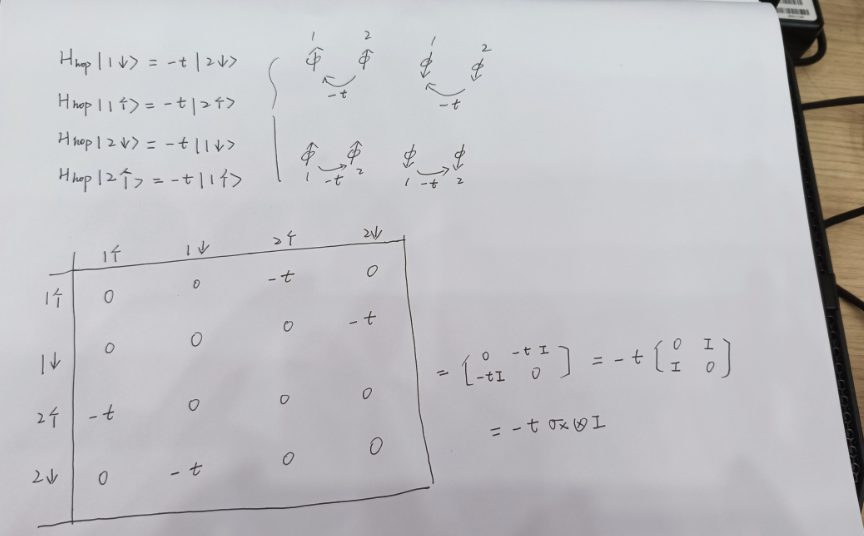 H_hop |1↓⟩ = -t |2↓⟩
H_hop |1↑⟩ = -t |2↑⟩
H_hop |2↓⟩ = -t |1↓⟩
H_hop |2↑⟩ = -t |1↑⟩
1 2 1 2
-t -t
1 -t 2 1 -t 2
1↑ 1↓ 2↑ 2↓
1↑ 0 0 -t 0
1↓ 0 0 0 -t
2↑ -t 0 0 0
2↓ 0 -t 0 0
= [ 0 -tI
-tI 0 ] = -t [ 0 I
I 0 ]
= -t σx ⊗ I